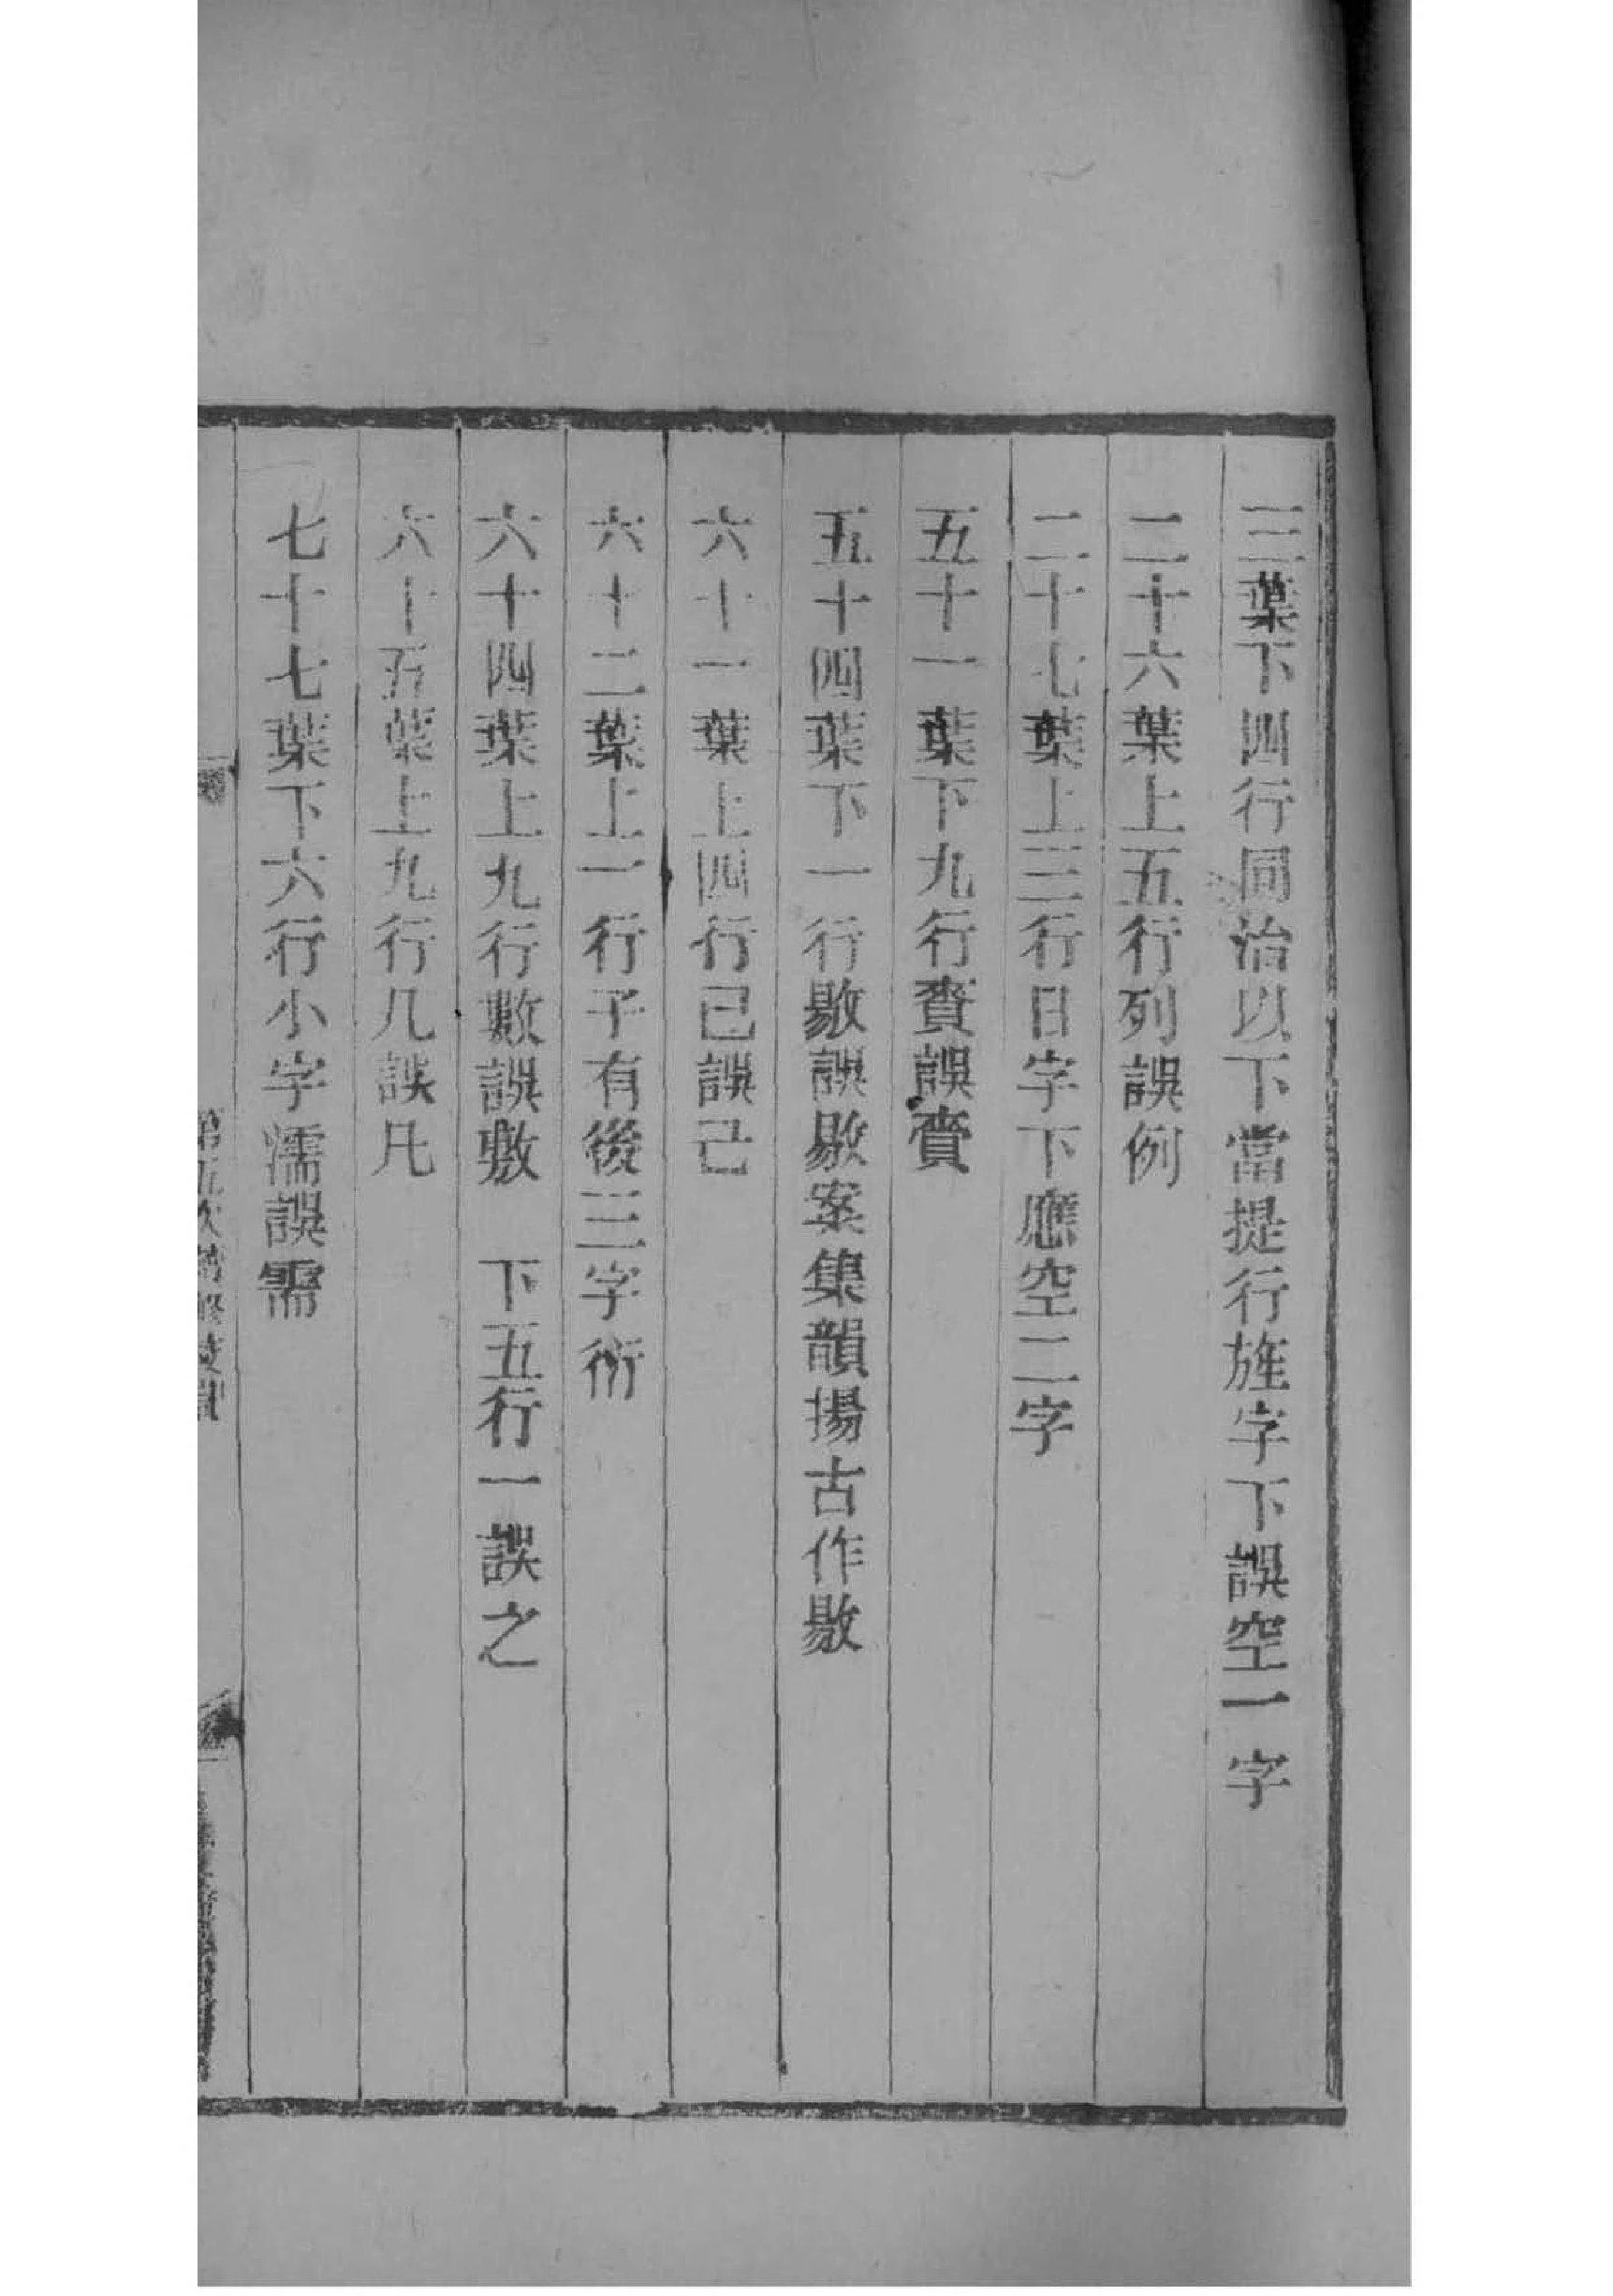 三葉下四行同治以下當提行旌字下誤空一字
二十六葉上五行列誤例
二十七葉上三行日字下應空二字
五十一葉下九行賚誤賫
五十四葉下一行敭誤歇案集韻揚古作敭
六十一葉上四行已誤己
六十二葉上一行子有後三字衍
六十四葉上九行數誤敷　下五行一誤之
六十五葉上九行几誤凡
七十七葉下六行小字濡誤需